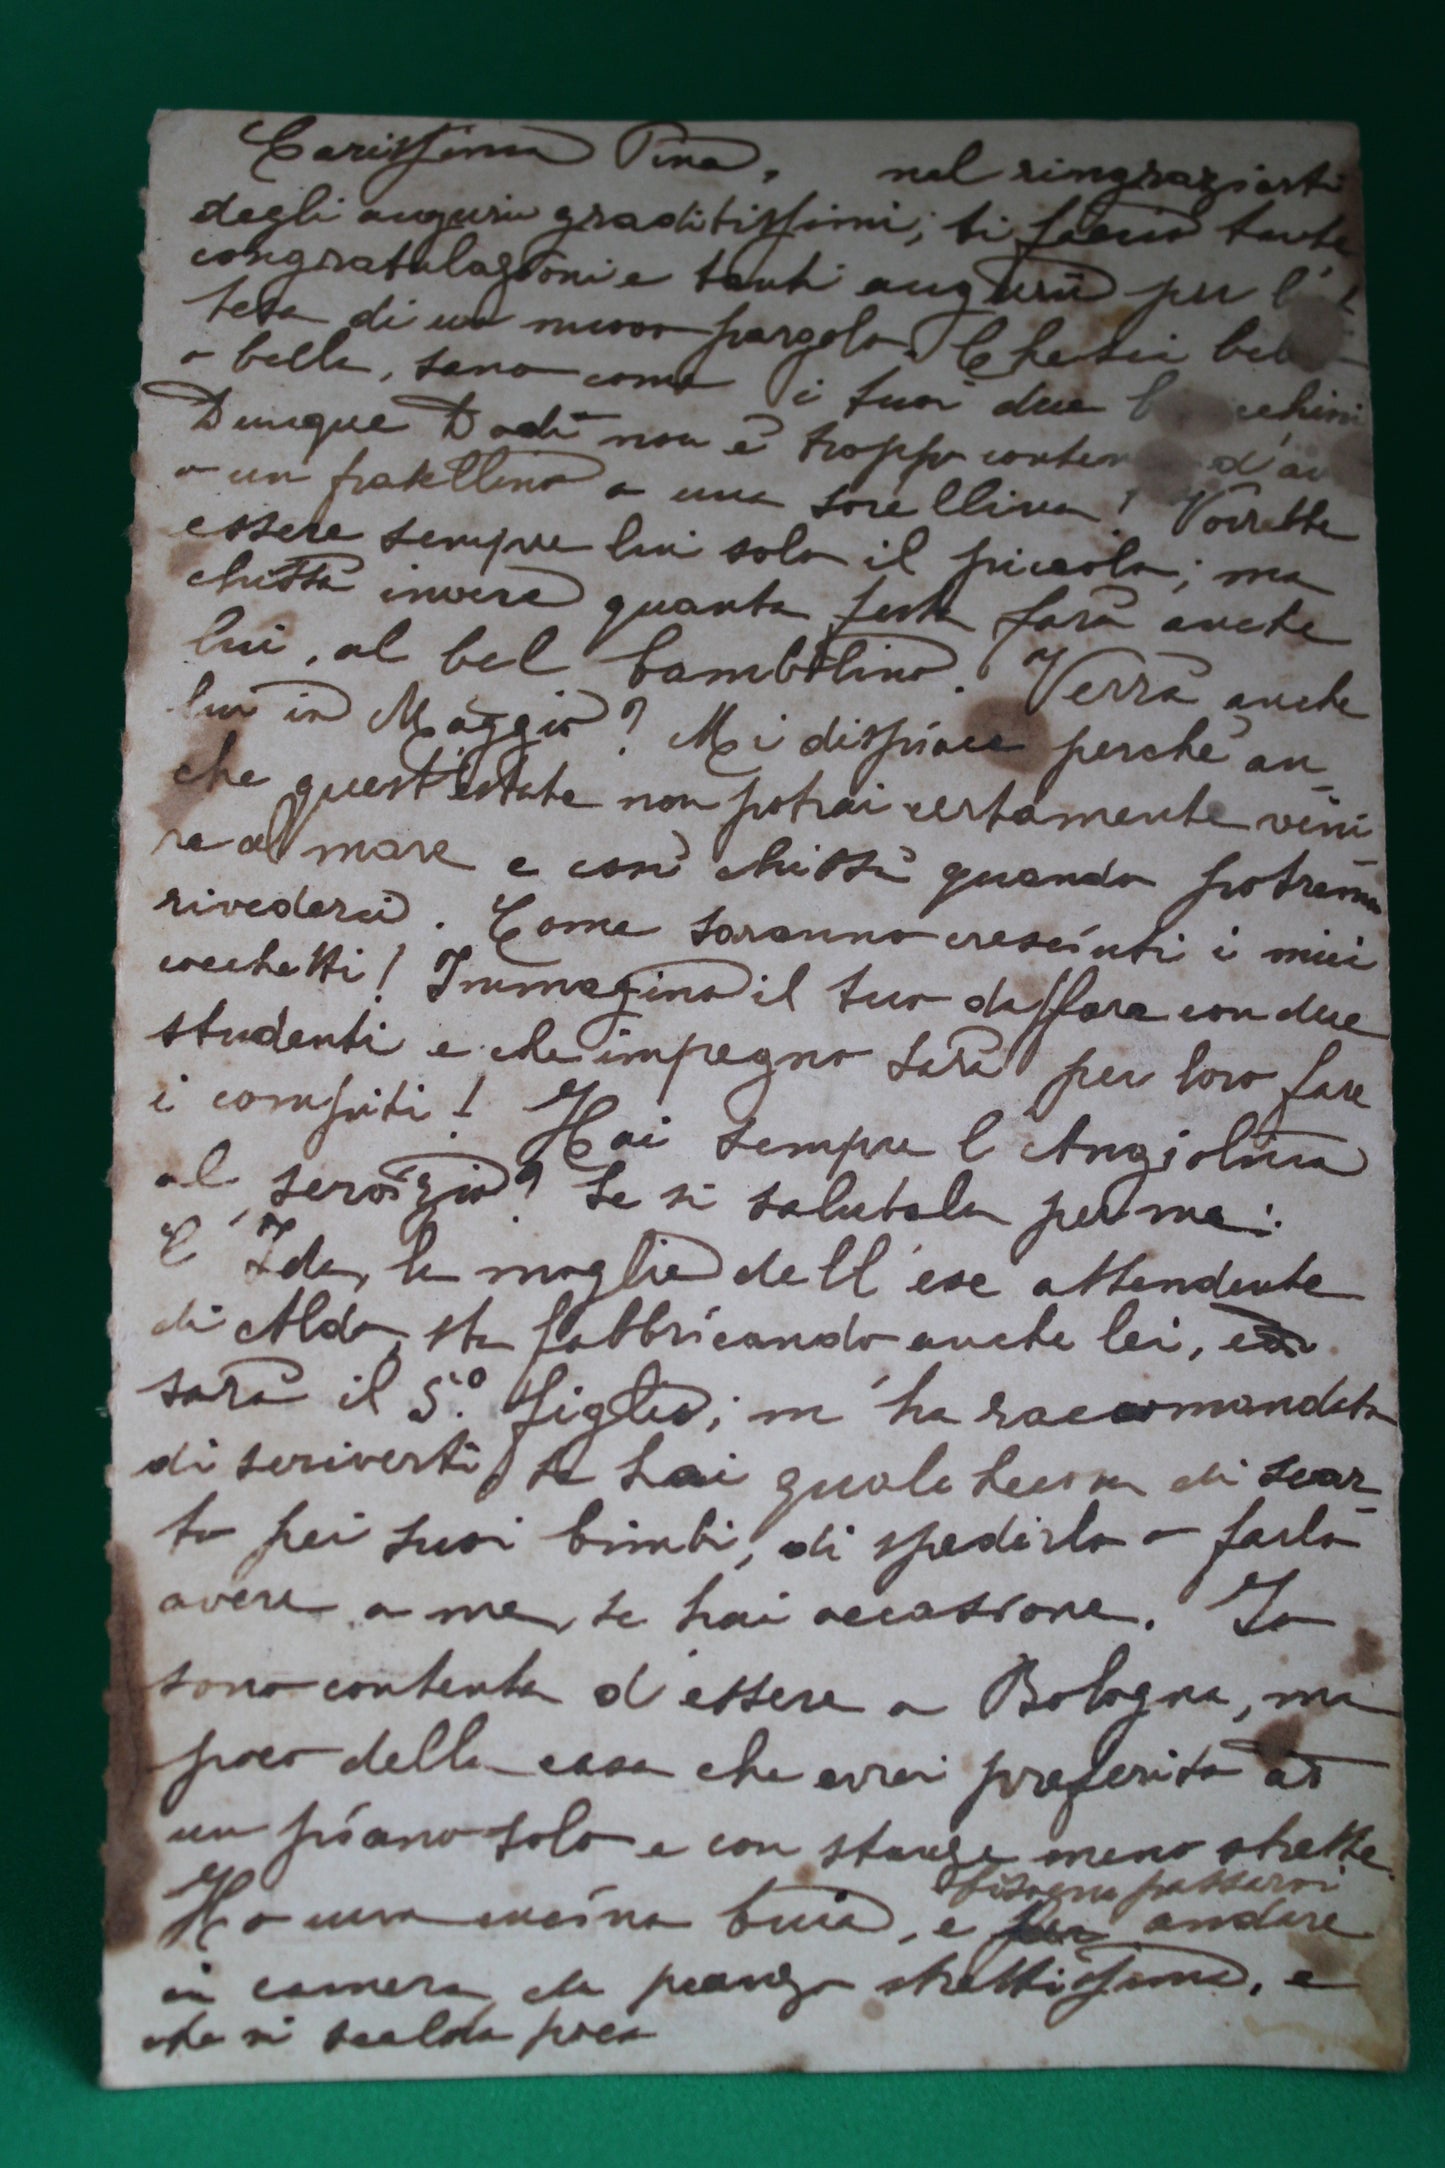 Carissima Pina, nel ringraziarti
degli augurii graditissimi, ti faccio tante
congratulazioni e tanti augurii per l'
tesa di un nuovo pargolo. Che sia bello
o bella, sano come i tuoi due
Dunque Dodi non è troppo d'
o un fratellino o una sorellina! Vorrebbe
essere sempre lui solo il piccolo; ma
chissà invece quanta festa farà anche
lui, al bel bambolino. Verrà anche
lui in Maggio? Mi dispiace perchè an-
che quest'estate non potrai certamente veni
re al mare e così chissà quando potremo
rivederci. Come saranno cresciuti i miei
cocchetti! Immagino il tuo daffare con due
studenti e che impegno sarà per loro fare
i compiti! Hai sempre l'Angiolina
al servizio? Se sì salutala per me.
L'Ida, la moglie dell'exe attendente
di Aldo, sta fabbricando anche lei, e
sarà il 5.º figlio; m'ha raccomandato
di scriverti, se hai qualche cosa di scar-
to pei suoi bimbi, di spedirlo o farlo
avere a me, se hai occasione. Io
sono contenta d'essere a Bologna, ma
poco della casa che avrei preferita ad
un piano solo e con stanze meno strette.
Ho una cucina buia, e bisogna passarvi andare
in camera da pranzo strettissima, e
che si scalda poco